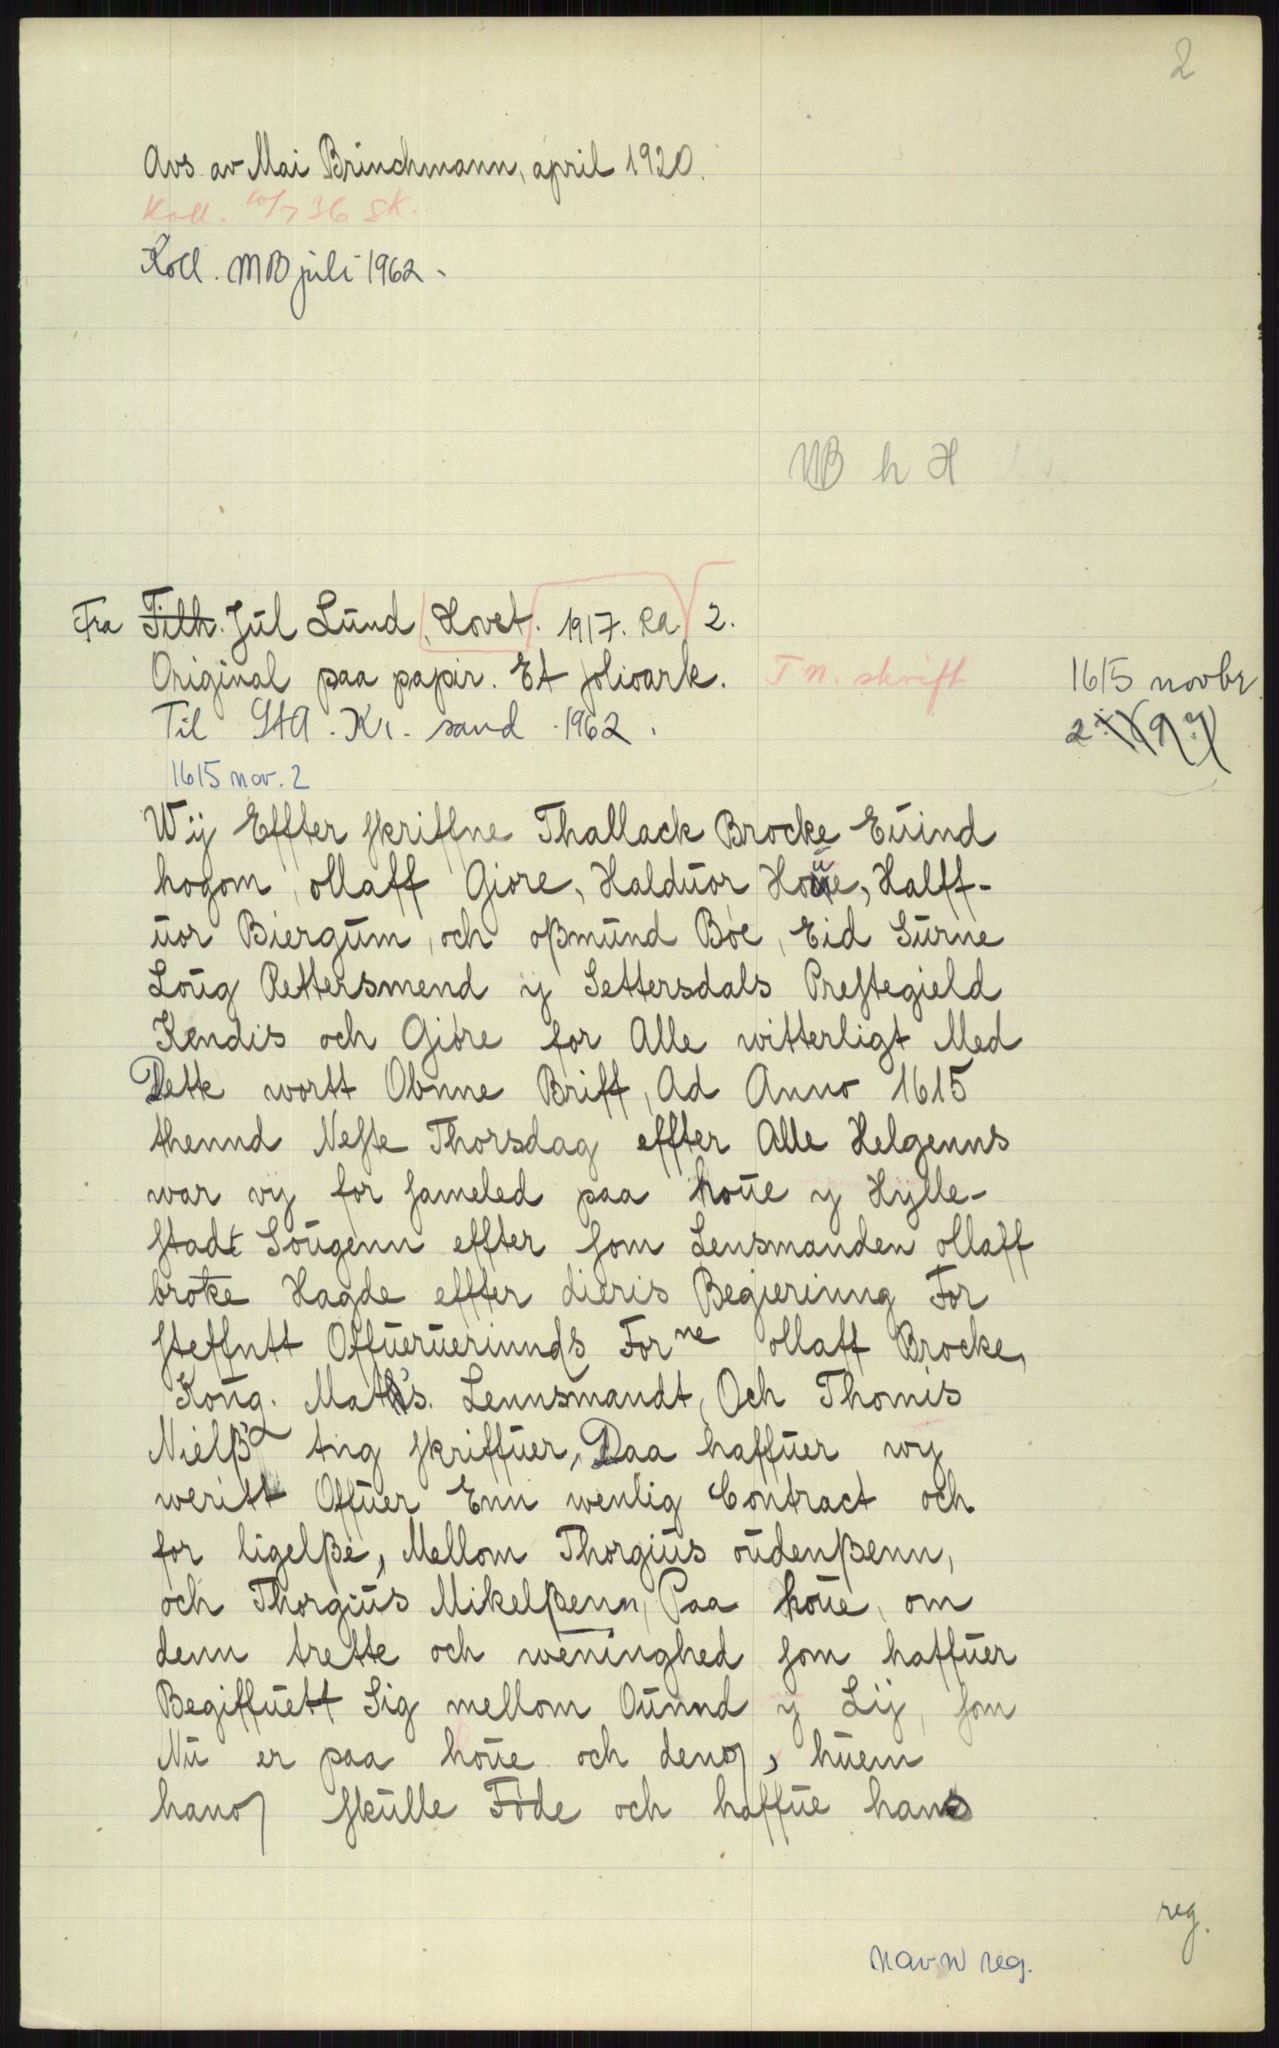 2
Avs. av Mai Brinchmann, april 1920.
Koll. 10/7 36 SK.
Koll. MB juli 1962.
MB h H
Fra Tilh. Jul Lund, Hovet. 1917. RA 2.
Original paa papir. Et folioark. T n. skrift
1615 novbr.
Til StA. Kr. sand 1962.
2
1615 nov. 2
Wÿ Effter skriffne Thallack Brocke Eŭind
hogom, ollaff Giøre, Haldŭor Hoŭe, Halff-
ŭor Biergŭm, och oßmŭnd Bøe, Eid Sŭrne
Loŭg Rettersmend y Settersdals Prestegield
Kendis och Giøre for Alle witterligt Med
Dette wortt Obnne Briff, Ad Anno 1615
thennd Neste Thorsdag effter Alle Helgenns
war vy for sameled paa hoŭe y Hylle-
stadt Soŭgenn effter som Lensmanden ollaff
broke Hagde effter dieris Begierinng For
steffntt Offŭerŭerinnds Forne ollaff Brocke,
Koŭg. Mat's. Lennsmandt, Och Thomis
Nielß ting skriffŭer, Daa haffŭer wy
weritt Offŭer Enn wenlig Contract och
for ligelße, Mellom Thorgiŭs oŭdenßenn,
och Thorgiŭs Mikelßenn, Paa hoŭe, om
denn trette och weninghed som haffŭer
Begiffŭett Sig mellom Oŭnnd y Lij, som
Nŭ er paa hoŭe och denn, hŭem
hann skŭlle Føde och haffŭe hans
reg.
navn reg.